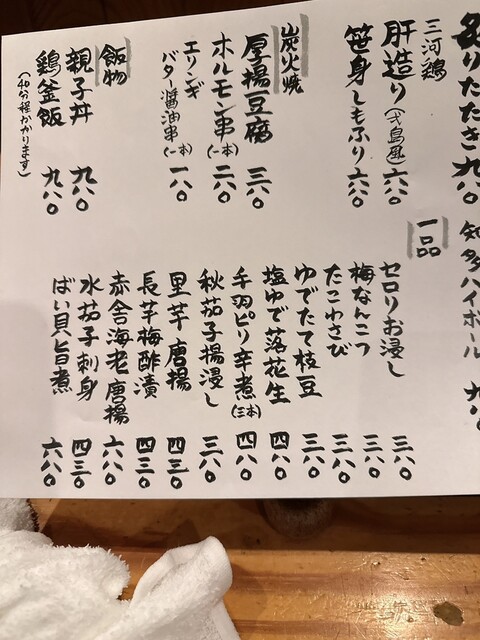 炙りたたき 九八〇
三河鶏
肝造り(弐島風) 六八〇
笹身しもふり 六八〇
炭火焼
厚揚豆腐 三八〇
ホルモン串(一本) 二八〇
エリンギ
バター醤油串(一本) 一八〇
飯物
親子丼 九八〇
鶏釜飯 九八〇
(40分程かかります)
知多ハイボール 九八
一品
セロリお浸し 三八〇
梅なんこつ 三八〇
たこわさび 三八〇
ゆでたて枝豆 三八〇
塩ゆで落花生 四八〇
手羽ピリ辛煮(三本) 四八〇
秋茄子揚浸し 三八〇
里芋唐揚 四三〇
長芋梅酢漬 四三〇
赤舎海老唐揚 六八〇
水茄子刺身 四三〇
ばい貝旨煮 六八〇